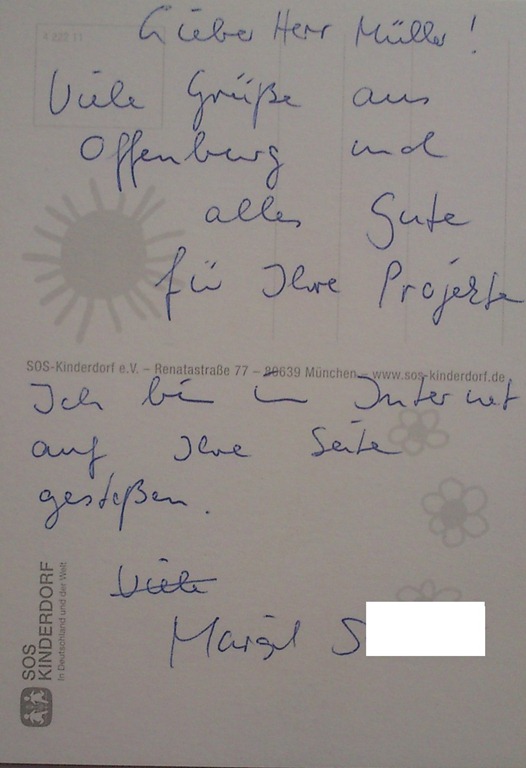 Lieber Herr Müller!
Viele Grüße aus
Offenburg und
alles Gute
für Ihre Projekte
SOS-Kinderdorf e.V. – Renatastraße 77 – 80639 München – www.sos-kinderdorf.de
Ich bin im Internet
auf Ihre Seite
gestoßen.
Viele
S
SOS
KINDERDORF
In Deutschland und der Welt